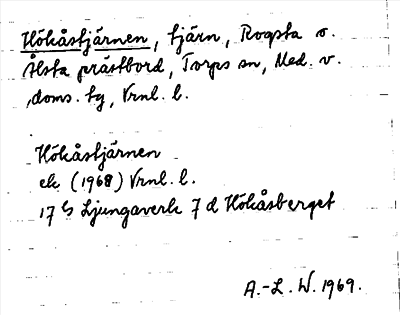 Hökåstjärnen, tjärn, Rogsta o.
Ålsta prästbord, Torps sn, Med. v.
doms. tg, Vrnl. l.
Hökåstjärnen
ek. (1968) Vrnl. l.
17 G Ljungaverk 7 d Hökåsberget
A.-L. W. 1969.